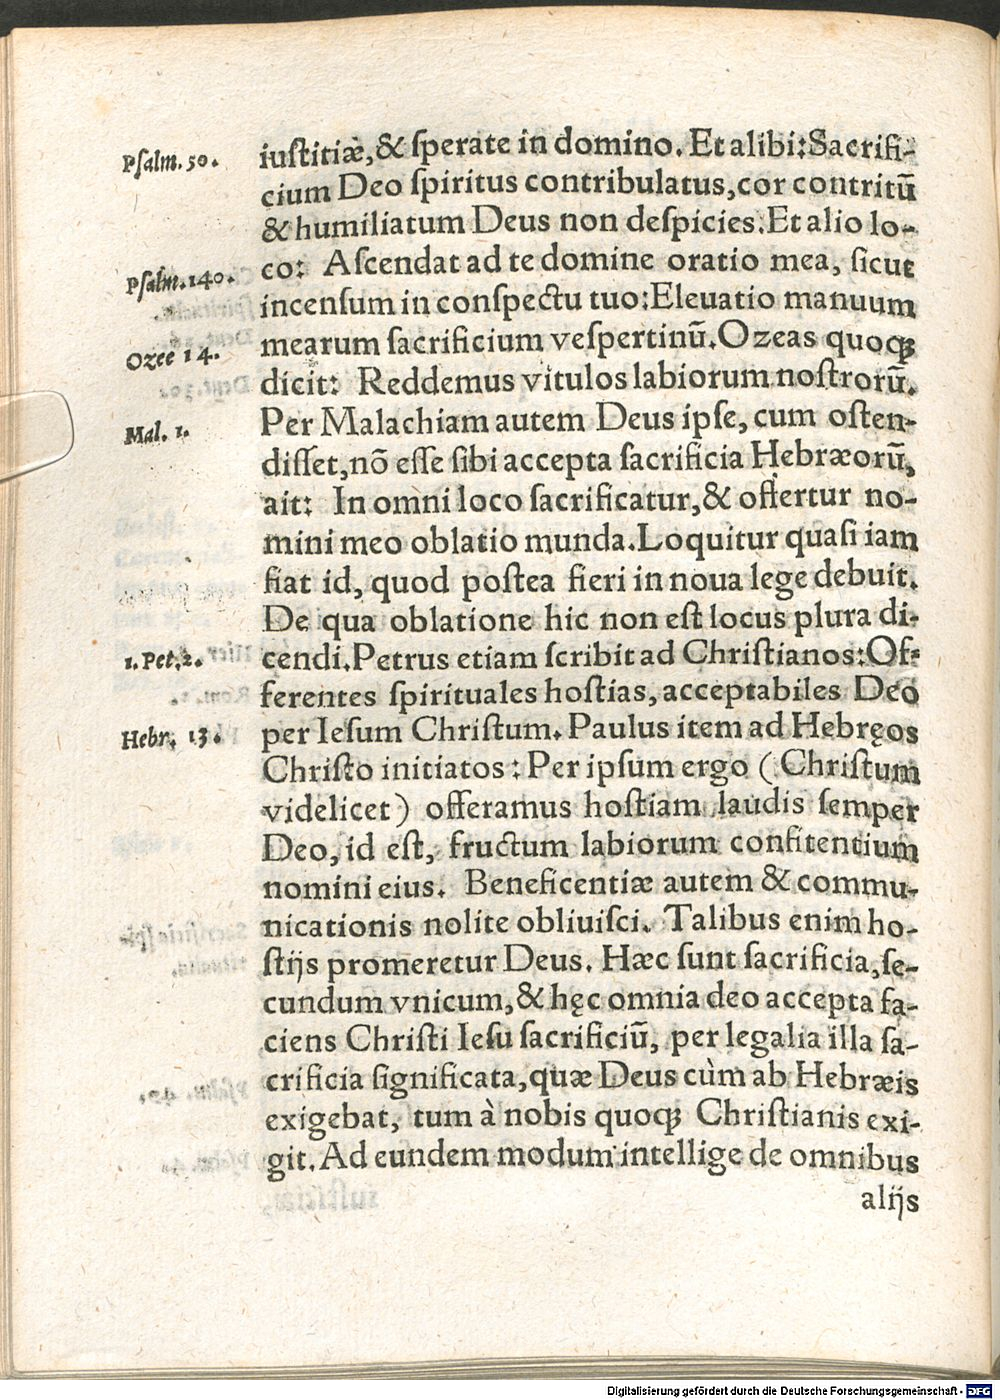 Psalm. 50.
iustitiæ, & sperate in domino. Et alibi: Sacrifi-
cium Deo spiritus contribulatus, cor contritū
& humiliatum Deus non despicies. Et alio lo-
Psalm. 140.
co: Ascendat ad te domine oratio mea, sicut
incensum in conspectu tuo: Eleuatio manuum
Ozee 14.
mearum sacrificium vespertinū. Ozeas quoqꝫ
dicit: Reddemus vitulos labiorum nostrorū.
Mal. 1.
Per Malachiam autem Deus ipse, cum osten-
disset, nō esse sibi accepta sacrificia Hebræorū,
ait: In omni loco sacrificatur, & offertur no-
mini meo oblatio munda. Loquitur quasi iam
fiat id, quod postea fieri in noua lege debuit.
De qua oblatione hic non est locus plura di-
1. Pet. 2.
cendi. Petrus etiam scribit ad Christianos: Of-
ferentes spirituales hostias, acceptabiles Deo
Hebr. 13.
per Iesum Christum. Paulus item ad Hebręos
Christo initiatos: Per ipsum ergo (Christum
videlicet) offeramus hostiam laudis semper
Deo, id est, fructum labiorum confitentium
nomini eius. Beneficentiæ autem & commu-
nicationis nolite obliuisci. Talibus enim ho-
stijs promeretur Deus. Hæc sunt sacrificia, se-
cundum vnicum, & hęc omnia deo accepta fa-
ciens Christi Iesu sacrificiū, per legalia illa sa-
crificia significata, quæ Deus cùm ab Hebræis
exigebat, tum à nobis quoqꝫ Christianis exi-
git. Ad eundem modum intellige de omnibus
alijs
Digitalisierung gefördert durch die Deutsche Forschungsgemeinschaft - DFG